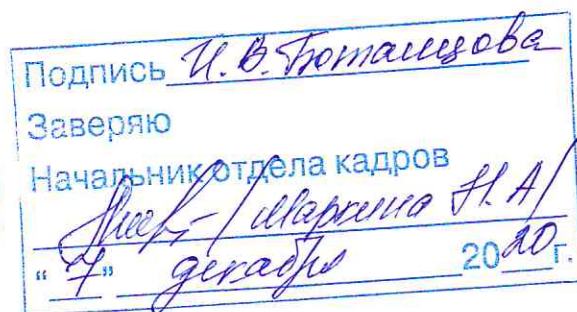 Подпись И. В. Ботанцова
Заверяю
Начальник отдела кадров
/ Маркина Н. А /
“ 7 ” декабря 20 20 г.